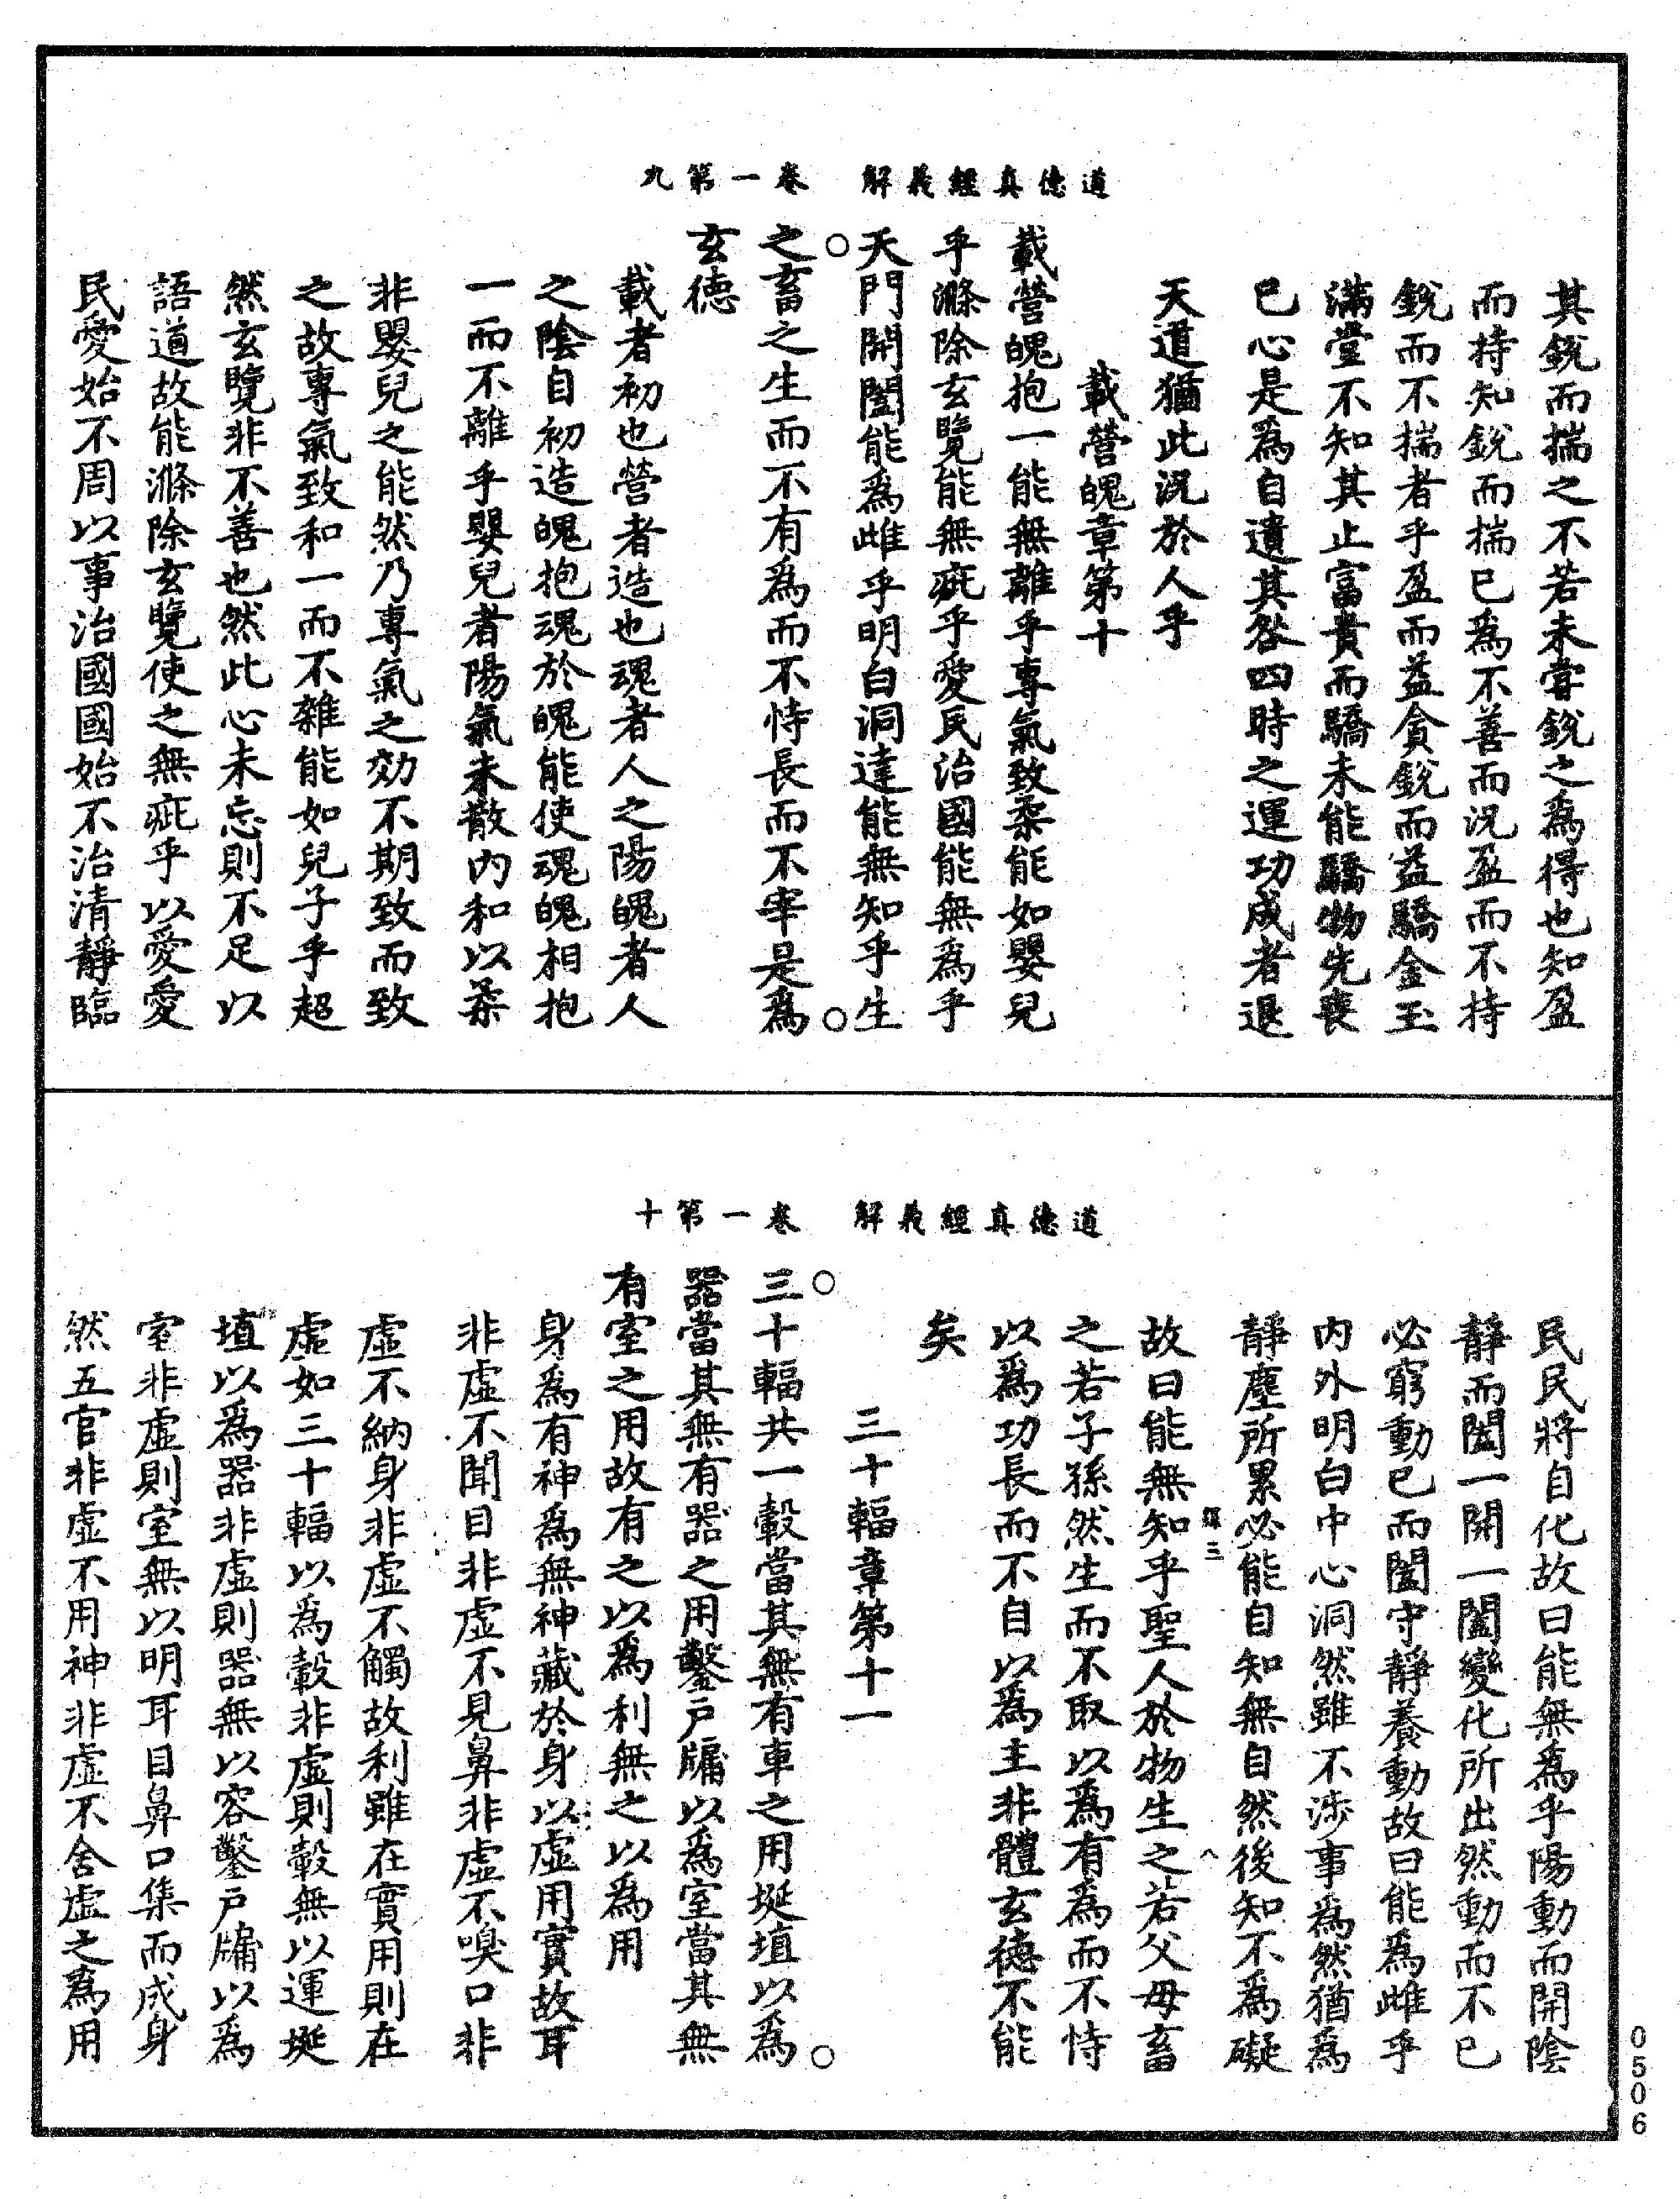 道德真經義解　卷一第九
其銳而揣之不若未甞銳之爲得也知盈
而持知銳而揣已爲不善而況盈而不持
銳而不揣者乎盈而益貪銳而益驕金玉
滿堂不知其止富貴而驕未能驕物先喪
已心是爲自遺其咎四時之運功成者退
天道猶此況於人乎
載營魄章第十
載營魄抱一能無離乎專氣致柔能如嬰兒
乎滌除玄覽能無疵乎愛民治國能無爲乎
天門開闔能爲雌乎明白洞達能無知乎生
之畜之生而不有爲而不恃長而不宰是爲
玄德
載者初也營者造也魂者人之陽魄者人
之陰自初造魄抱魂於魄能使魂魄相抱
一而不離乎嬰兒者陽氣未散內和以柔
非嬰兒之能然乃專氣之効不期致而致
之故專氣致和一而不雜能如兒子乎超
然玄覽非不善也然此心未忘則不足以
語道故能滌除玄覽使之無疵乎以愛愛
民愛始不周以事治國國始不治清靜臨
道德真經義解　卷一第十
民民將自化故曰能無爲乎陽動而開陰
靜而闔一開一闔變化所出然動而不已
必窮動已而闔守靜養動故曰能爲雌乎
內外明白中心洞然雖不涉事爲然猶爲
靜塵所累必能自知無自然後知不爲礙
故曰能無知乎聖人於物生之若父母畜
之若子孫然生而不取以爲有爲而不恃
以爲功長而不自以爲主非體玄德不能
矣
三十輻章第十一
三十輻共一轂當其無有車之用埏埴以爲
器當其無有器之用鑿戶牖以爲室當其無
有室之用故有之以爲利無之以爲用
身爲有神爲無神藏於身以虛用實故耳
非虛不聞目非虛不見鼻非虛不嗅口非
虛不納身非虛不觸故利雖在實用則在
虛如三十輻以爲轂非虛則轂無以運埏
埴以爲器非虛則器無以容鑿戶牖以爲
室非虛則室無以明耳目鼻口集而成身
然五官非虛不用神非虛不舍虛之爲用
0506